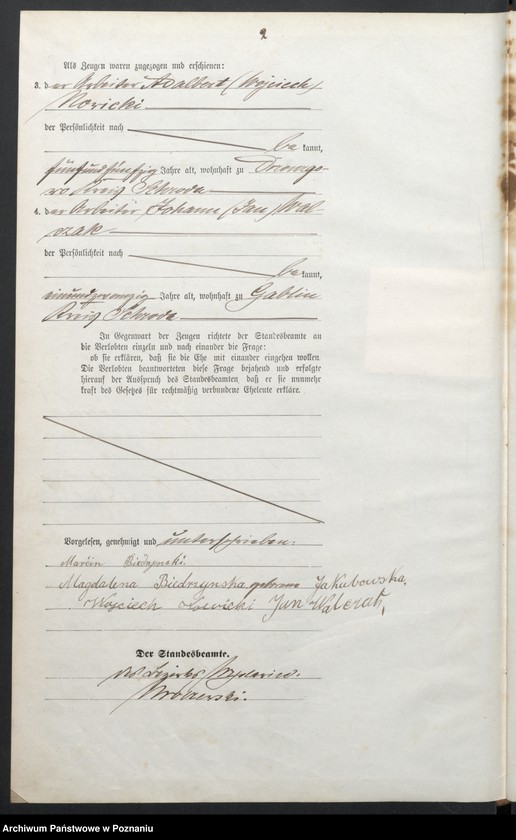 2
Als Zeugen waren zugezogen und erschienen:
3. der Arbeiter Adalbert (Wojciech)
Nowicki
der Persönlichkeit nach
be kannt,
fünfundfünfzig Jahre alt, wohnhaft zu
Kreis Schroda
4. der Arbeiter Johann (Jan) Wal-
czak
der Persönlichkeit nach
be kannt,
einundzwanzig Jahre alt, wohnhaft zu Gablin
Kreis Schroda
In Gegenwart der Zeugen richtete der Standesbeamte an
die Verlobten einzeln und nach einander die Frage:
ob sie erklären, daß sie die Ehe mit einander eingehen wollen.
Die Verlobten beantworteten diese Frage bejahend und erfolgte
hierauf der Ausspruch des Standesbeamten, daß er sie nunmehr
kraft des Gesetzes für rechtmäßig verbundene Eheleute erkläre.
Vorgelesen, genehmigt und unterschrieben.
Marcin Biedrzynski.
Magdalena Biedrzynska geborene Jakubowska,
Wojciech Nowicki Jan Walczak,
Der Standesbeamte.
Archiwum Państwowe w Poznaniu